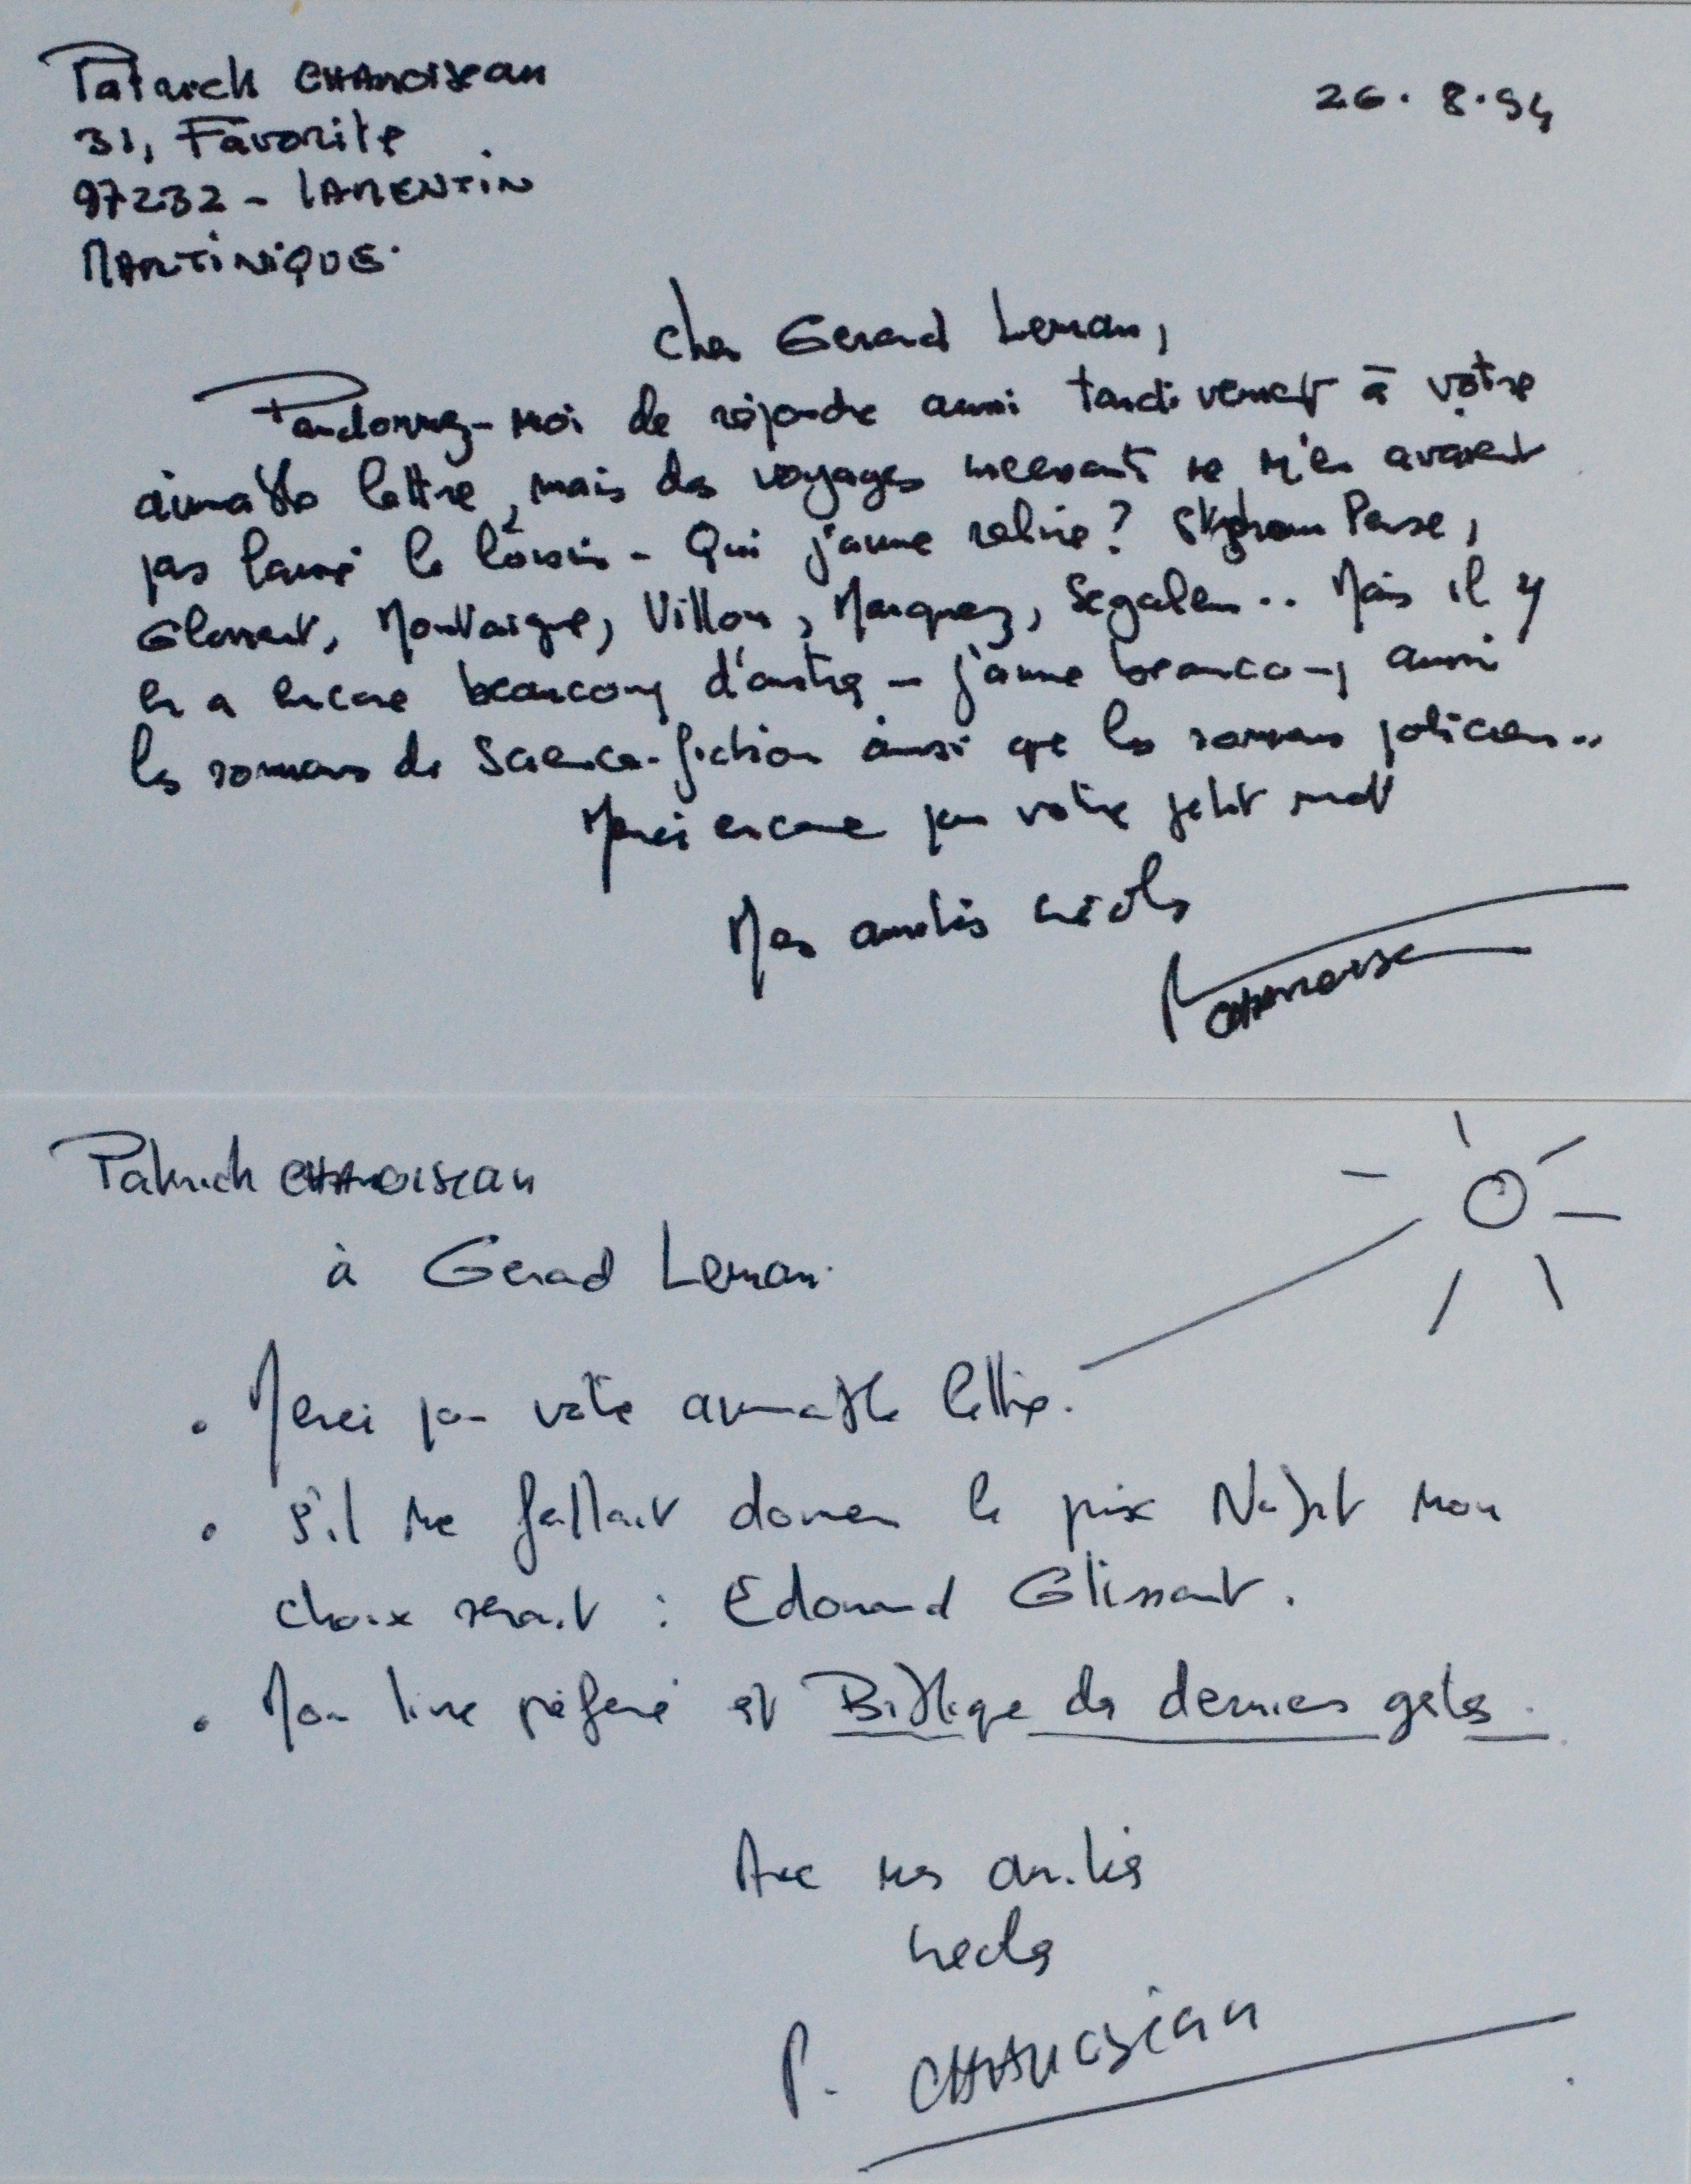 Patrick CHAMOISEAU
26.8.94
31, Favorite
97232 - LAMENTIN
MARTINIQUE.
Cher Gerard Leman,
Pardonnez-moi de répondre aussi tardivement à votre
aimable lettre, mais des voyages incessants ne m'en avaient
pas laissé le loisir - Qui j'aime relire? Perse,
Glissant, Montaigne, Villon, Marquez, Segalen.. Mais il y
en a encore beaucoup d'autres - j'aime beaucoup aussi
les romans de Science-fiction ainsi que les romans policiers..
Merci encore pour votre petit mot
Mes amitiés créoles
P. Chamoiseau
Patrick CHAMOISEAU
à Gerard Leman.
• Merci pour votre aimable lettre.
• S'il me fallait donner le prix Nobel mon
choix serait : Edouard Glissant.
• Mon livre préféré est Biblique des derniers gestes.
Avec mes amitiés
créoles
P. CHAMOISEAU